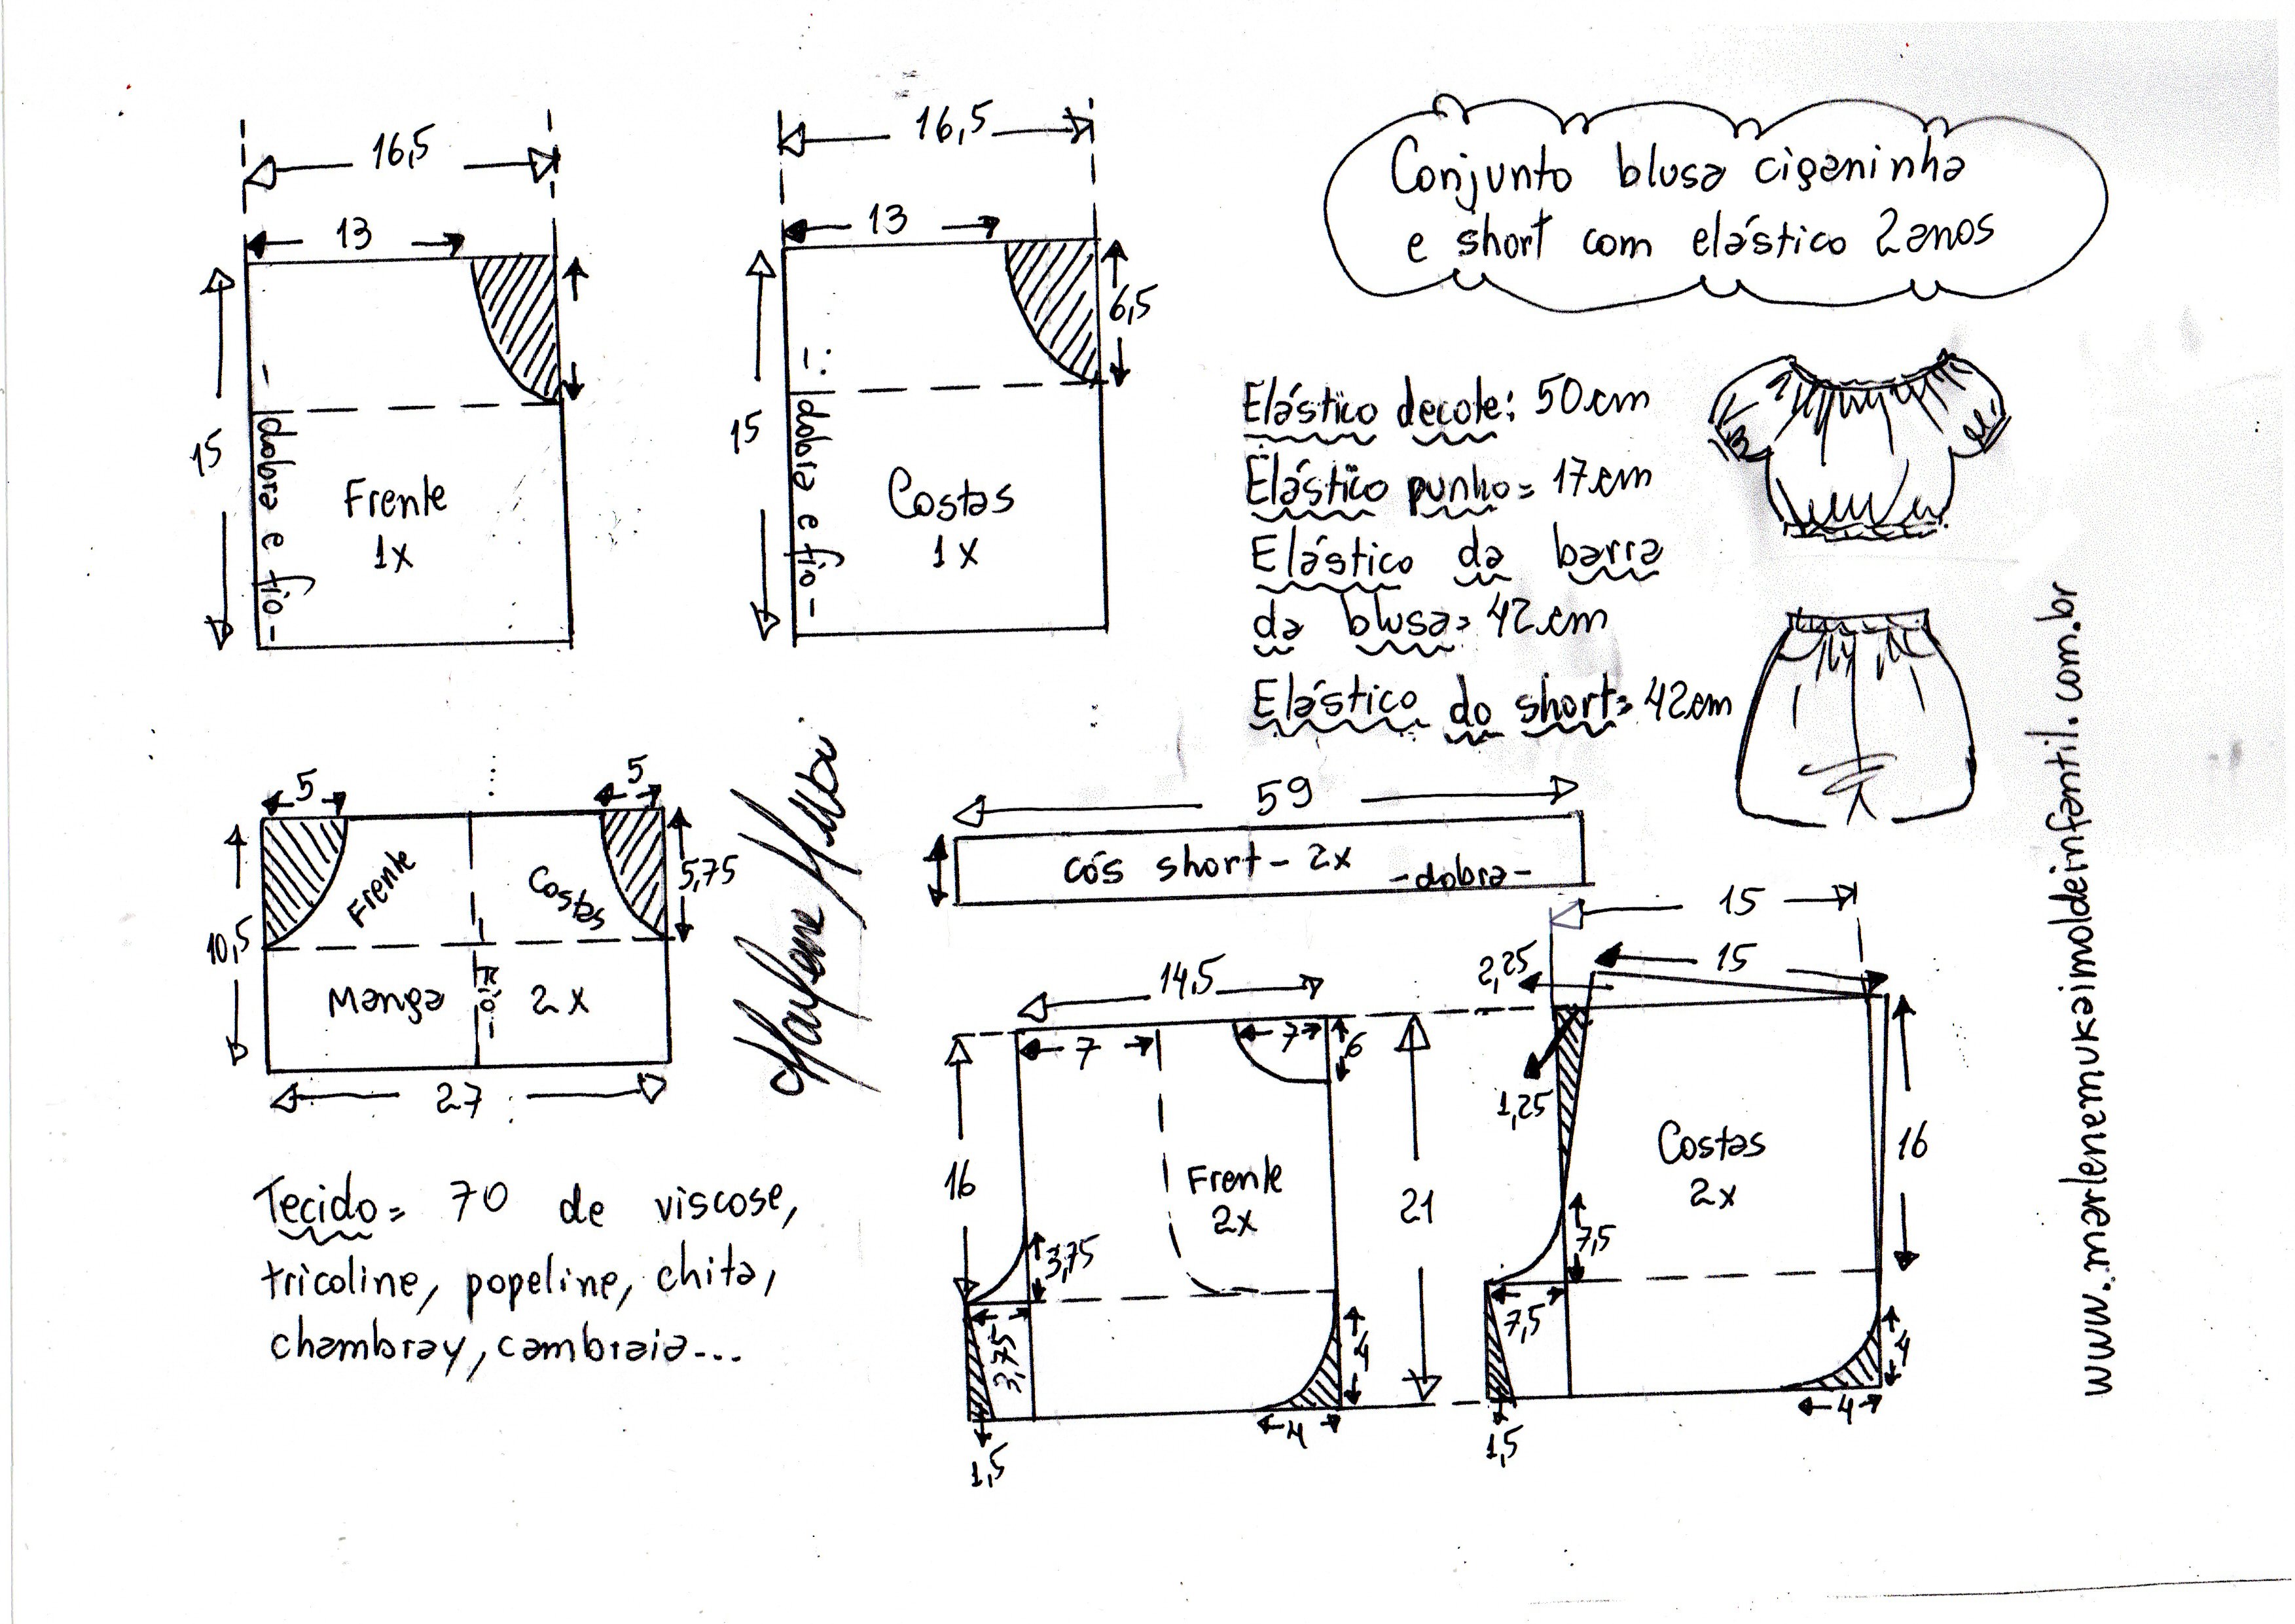 Conjunto blusa ciganinha
e short com elástico 2anos
16,5
13
15
- dobra e fio -
Frente
1x
16,5
13
6,5
15
- dobra e fio -
Costas
1x
Elástico decote: 50cm
Elástico punho= 17cm
Elástico da barra
da blusa= 42cm
Elástico do short= 42cm
5
5
5,75
10,5
Frente
Costas
Manga
fio-
2x
27
59
cós short - 2x
-dobra-
14,5
7
7
6
16
Frente
2x
3,75
3,75
4
4
1,5
21
15
15
2,25
1,25
Costas
2x
16
7,5
7,5
4
4
1,5
Tecido= 70 de viscose,
tricoline, popeline, chita,
chambray, cambraia...
www.marlenemukaimoldeinfantil.com.br